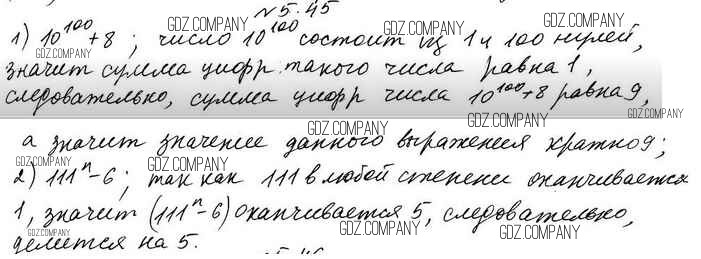 №5.45
1) 10^100+8; число 10^100 состоит из 1 и 100 нулей,
значит сумма цифр такого числа равна 1,
следовательно, сумма цифр числа 10^100+8 равна 9,
а значит значение данного выражения кратно 9;
2) 111^n-6; так как 111 в любой степени оканчивается
1, значит (111^n-6) оканчивается 5, следовательно,
делится на 5.
GDZ.COMPANY
GDZ.COMPANY
GDZ.COMPANY
GDZ.COMPANY
GDZ.COMPANY
GDZ.COMPANY
GDZ.COMPANY
GDZ.COMPANY
GDZ.COMPANY
GDZ.COMPANY
GDZ.COMPANY
GDZ.COMPANY
GDZ.COMPANY
GDZ.COMPANY